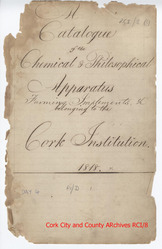 A
Catalogue
of the
Chemical & Philosophical
Apparatus
Farming Implements, &
belonging to the
Cork Institution.
1818.
Cork City and County Archives RCI/8